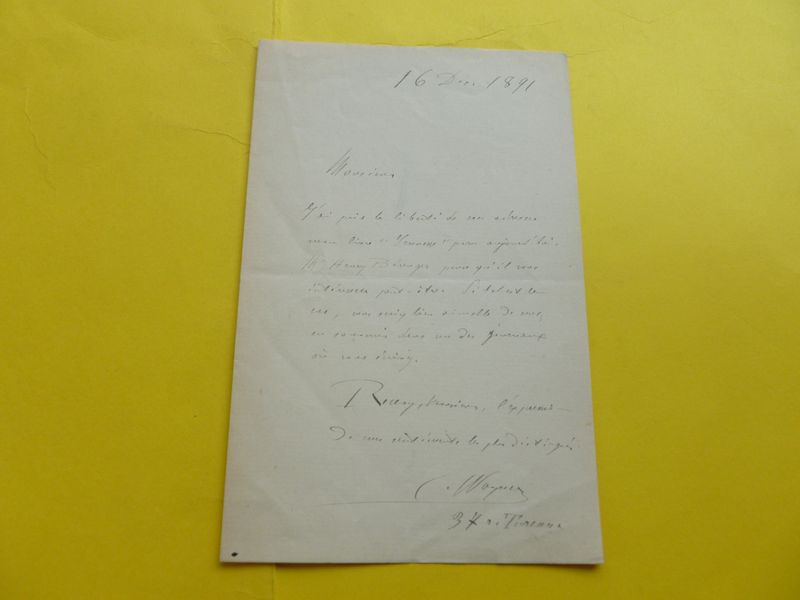 16 Déc. 1891
Monsieur
J'ai pris la liberté de vous adresser
mon livre "Jeunesse" pour aujourd'hui.
Mr Henry Bérenger pense qu'il vous
intéressera peut-être. Si tel est le
cas, vous seriez bien aimable de
en dans un des journaux
où vous écrivez.
Recevez, Monsieur, l'expression
de mes sentiments les plus distingués.
C. Wagner
37 r. Turenne